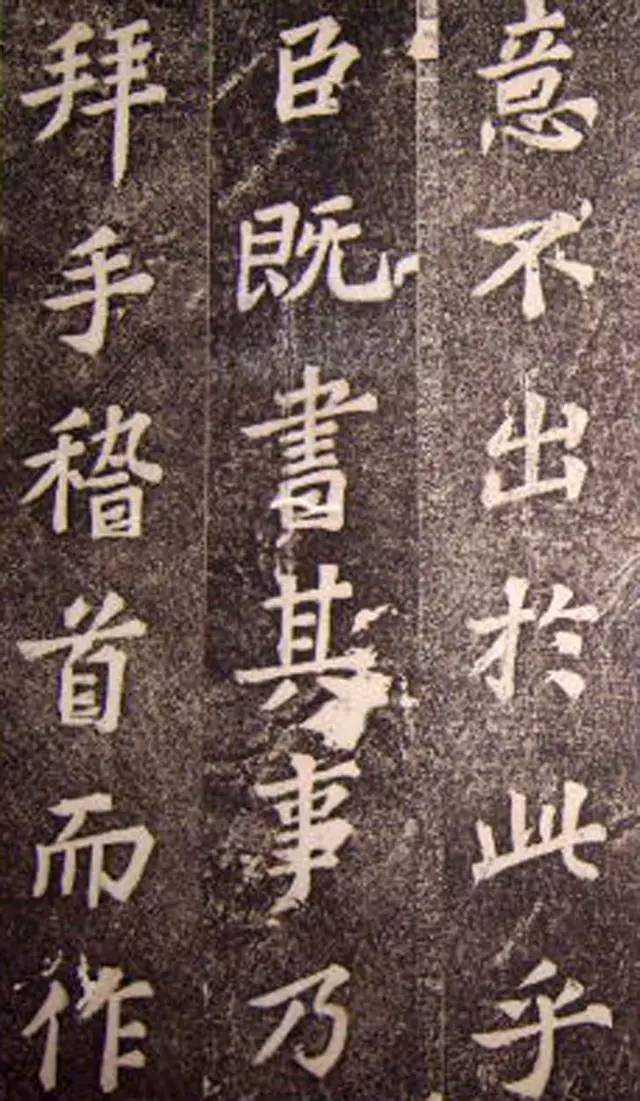 意不出於此乎
臣既書其事乃
拜手稽首而作